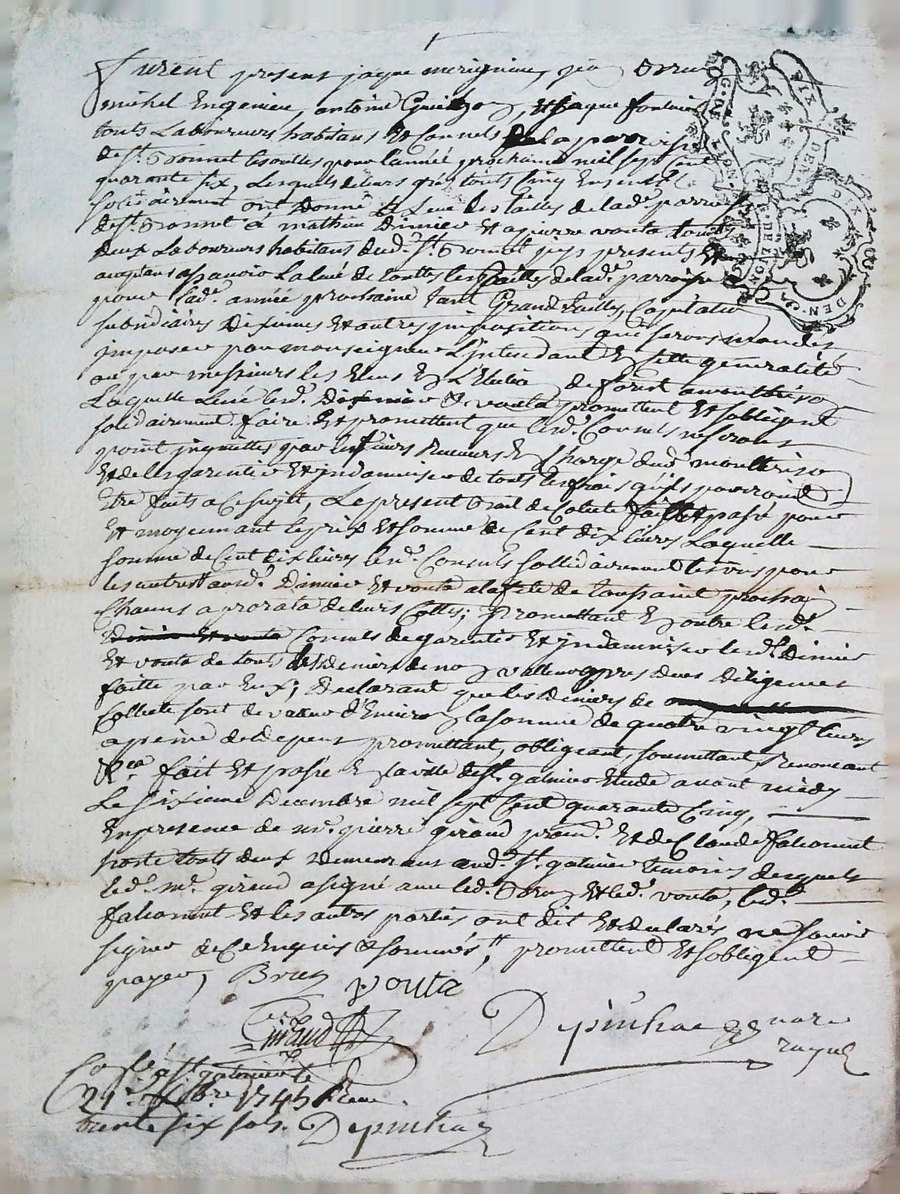 Furent present jaque merignieu, jea Brun
michel Engenieu, antoine Et jaque fontain
touts Laboureurs habitans Et Consuls De la parroisse
de St. Bonnet les oulles pour lannée prochaine mil sept cent
quarante six, Lesquels de leurs grés touts Cinq Ensemble
solidairement ont Donné La Levé des tailles de lade. parroisse
de St. Bonnet à mathieu Dimier Et a pierre vouta touts
deux Laboureurs habitans dud. St. Bonnet jcys presents Et
acceptans assavoir La levé de touttes les tailles de lade. parroisse
pour lade. année prochaine tant Grand tailles, Capitation
subsidiaires Dixiemes Et autres jmpositions qui seront mandés
jmposer par monseigneur L'jntendant En Sette généralité
ou par messieurs les Elus En L'Election de forest a montbrison
Laquelle Levé lesd. Dimier & vouta promettent Et sobligent
solidairement faire Et promettent que lesd. Consuls ne seront
point jnquiettés par les sieurs Receveurs En Charge dud. montbrison
Et de les garentir Et jndamniser de touts les frais quils pourroint
Etre faits a Ce sujet, Le present Bail de Colecte fait Et passé pour
Et moyennant le prix Et somme de Cent dix livres Laquelle
somme de Cent dix livres lesd. Consuls sollidairement les uns pour
les autres aud. Dimier Et vouta a la fete de toussaint prochain
Chacuns a prorata de leurs Cottes; Promettant En outre lesd.
Dimier Et vouta Consuls de garentir Et jndamniser lesd. Dimier
Et vouta de touts les deniers de non valleur apres dues Diligences
faitte par Eux, Declarant que les Deniers de
Collecte sont de valeur d'Environ la somme de quatre vingt livres
a peine de depens promettant, obligeant, soumettant, Renoncant
&ca. fait Et passé En la ville de St. galmier Etude avant midy
Le sixieme Decembre mil sept Cent quarante Cinq,
En presence de me. pierre giraud pratn. Et de Claude falconnet
hoste touts deux Demeurans aud. St. galmier temoins desquels
led. me. giraud a signé avec led. Brun Et led. vouta, led.
falconnet Et les autres parties ont dit Et declarés ne scavoir
signer de Ce Enquis & sommés, promettent Et sobligent
payer, Brun vouta
Giraud
Depinhac nore
royal
Conlé a St. galmier le
1745 Reçu
trente six sols. Depinhac